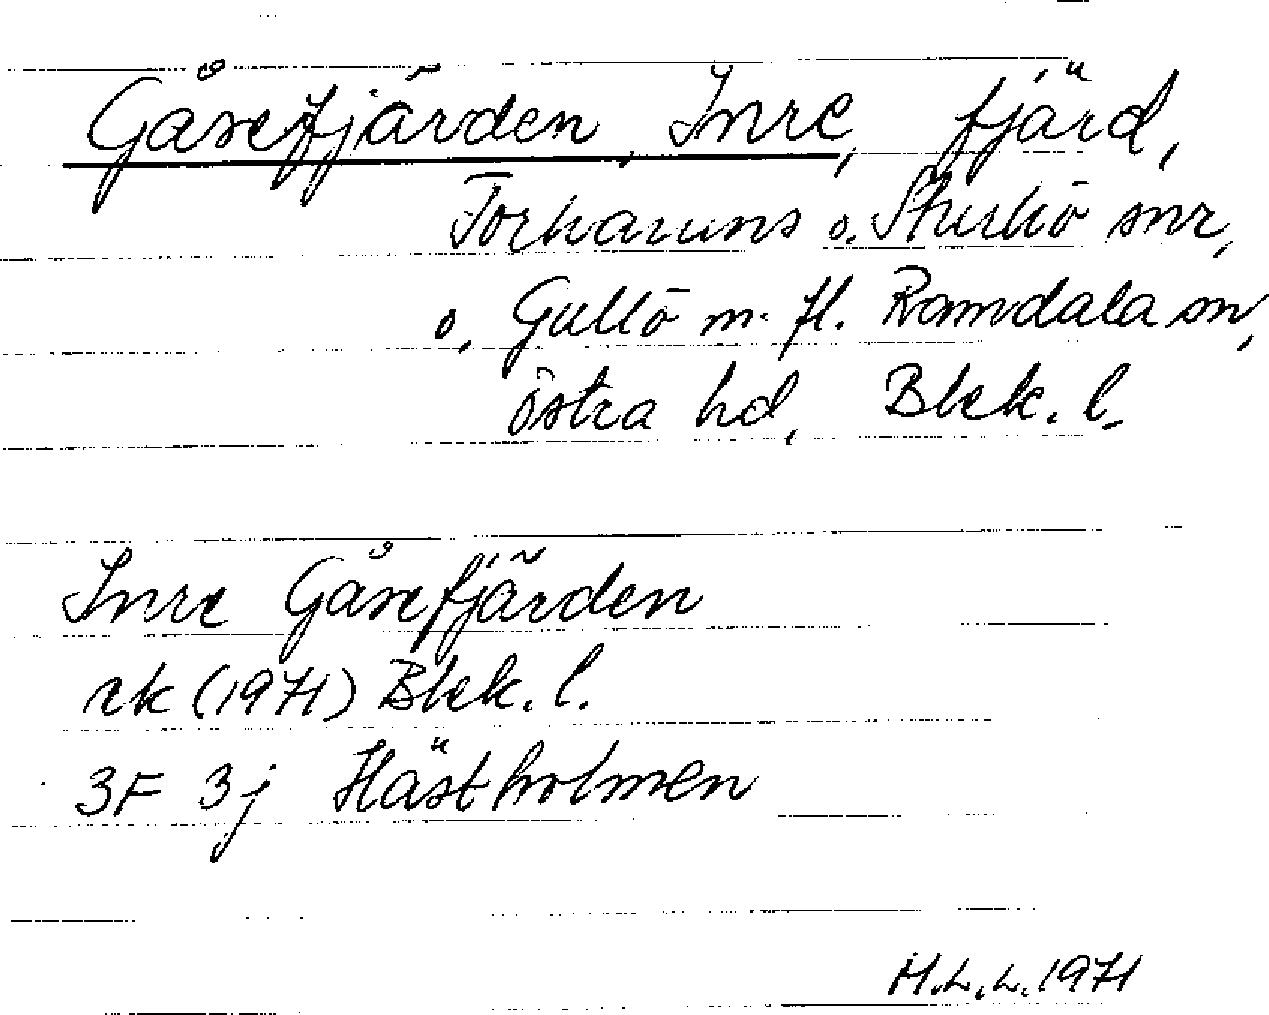 Gåsefjärden, Inre, fjärd,
Torhamns o. Sturkö snr,
o. Gullö m. fl. Ramdala sn,
östra hd, Blek. l.
Inre Gåsefjärden
rk (1971) Blek. l.
3F 3j Hästholmen
H.L.L. 1971